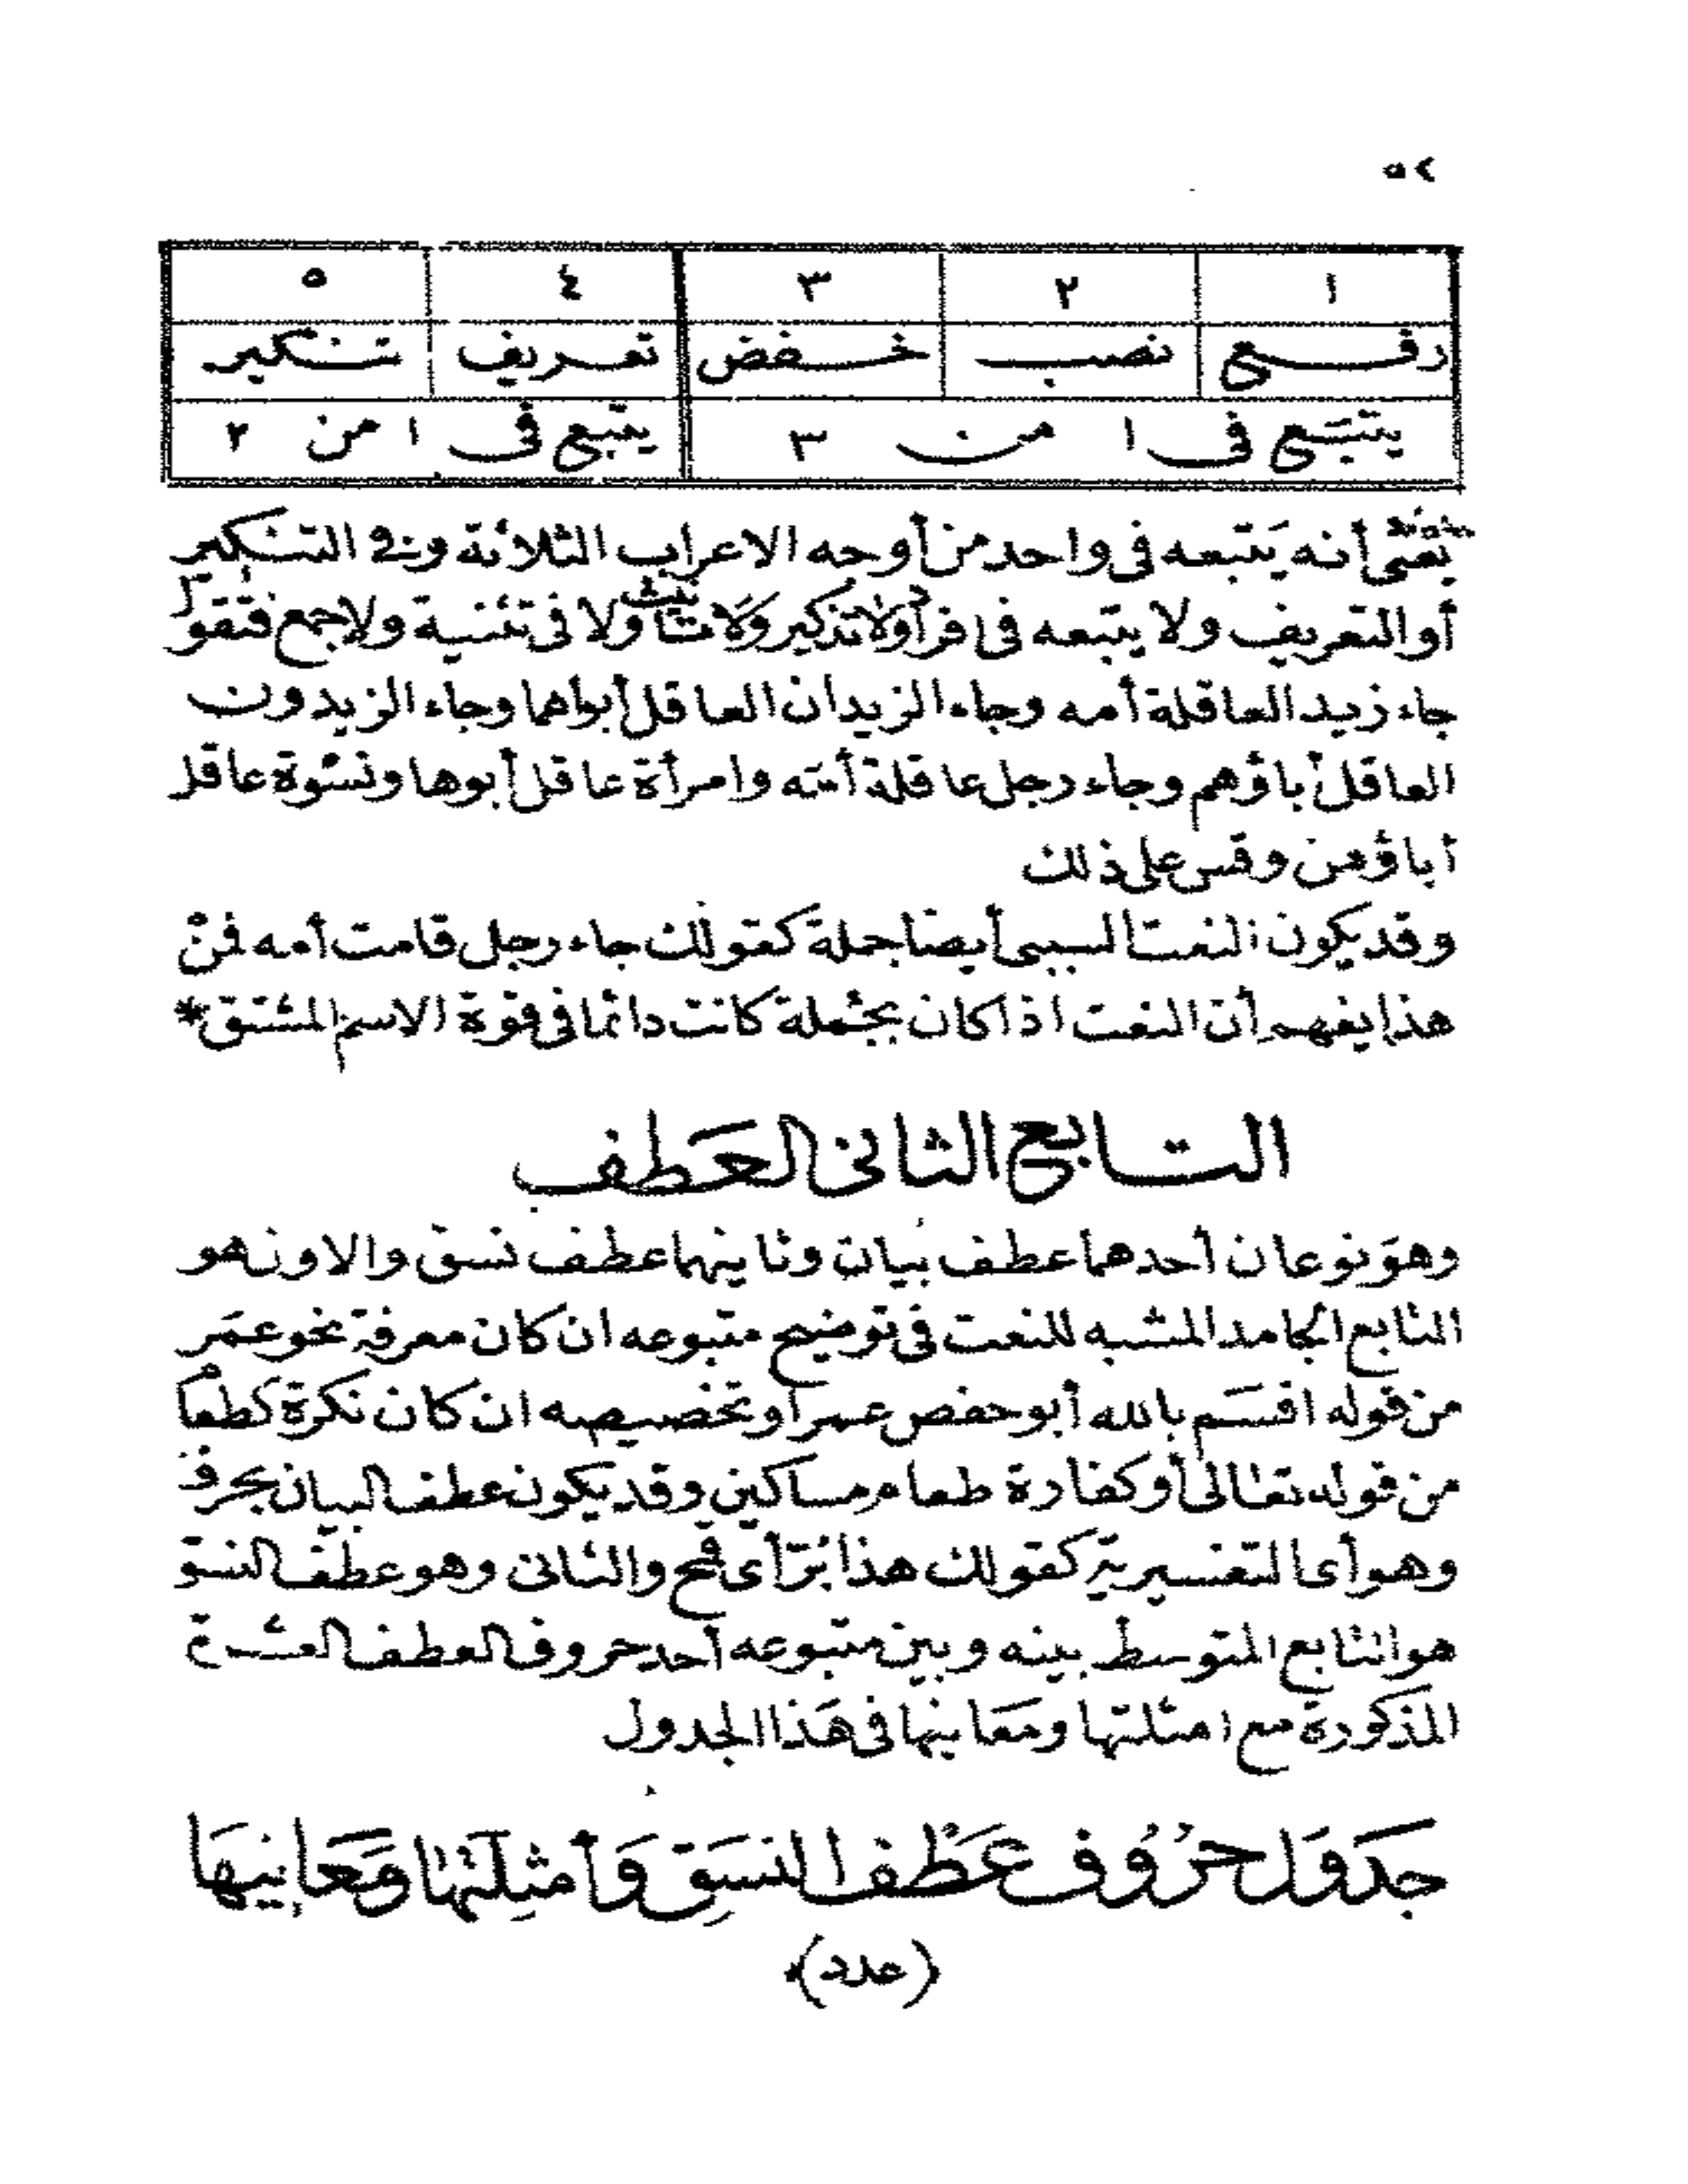 ٥٢
١ ٢ ٣ ٤ ٥
رفع نصب خفض تعريف تنكير
يتبع فى ١ من ٣ يتبع فى ١ من ٢
يعنى أنه يتبعه فى واحد من أوجه الاعراب الثلاثة وفى التنكير
أو التعريف ولا يتبعه فى افراد ولا تذكير ولا تانيث ولا فى تثنية ولا جمع فتقول
جاء زيد العاقلة أمه وجاء الزيدان العاقل أبواهما وجاء الزيدون
العاقل أباؤهم وجاء رجل عاقلة أمته وامرأة عاقل أبوها ونسوة عاقل
أباؤهن وقس على ذلك
وقد يكون النعت السببى أيضا جملة كقولك جاء رجل قامت أمه فمن
هذا يفهم أن النعت اذا كان بجملة كانت دائما فى قوة الاسم المشتق *
التابع الثانى العَطف
وهو نوعان أحدهما عطف بيان وثانيهما عطف نسق والاول هو
التابع الجامد المشبه للنعت فى توضيح متبوعه ان كان معرفة نحو عمَر
من قوله اقسَم بالله أبو حفص عمر أو تخصيصه ان كان نكرة كطعام
من قوله تعالى أو كفارة طعام مساكين وقد يكون عطف البيان بحرف
وهو أى التفسيرية كقولك هذا بُرّ أى قمح والثانى وهو عطف النسق
هو التابع المتوسط بينه وبين متبوعه أحد حروف العطف العشرة
المذكورة مع امثلتها ومَعانيها فى هَذا الجدول
جدَوَل حرُوُف عَطْف النسَقِ وَأمثِلَتها ومَعَانيهَا
(عدد)